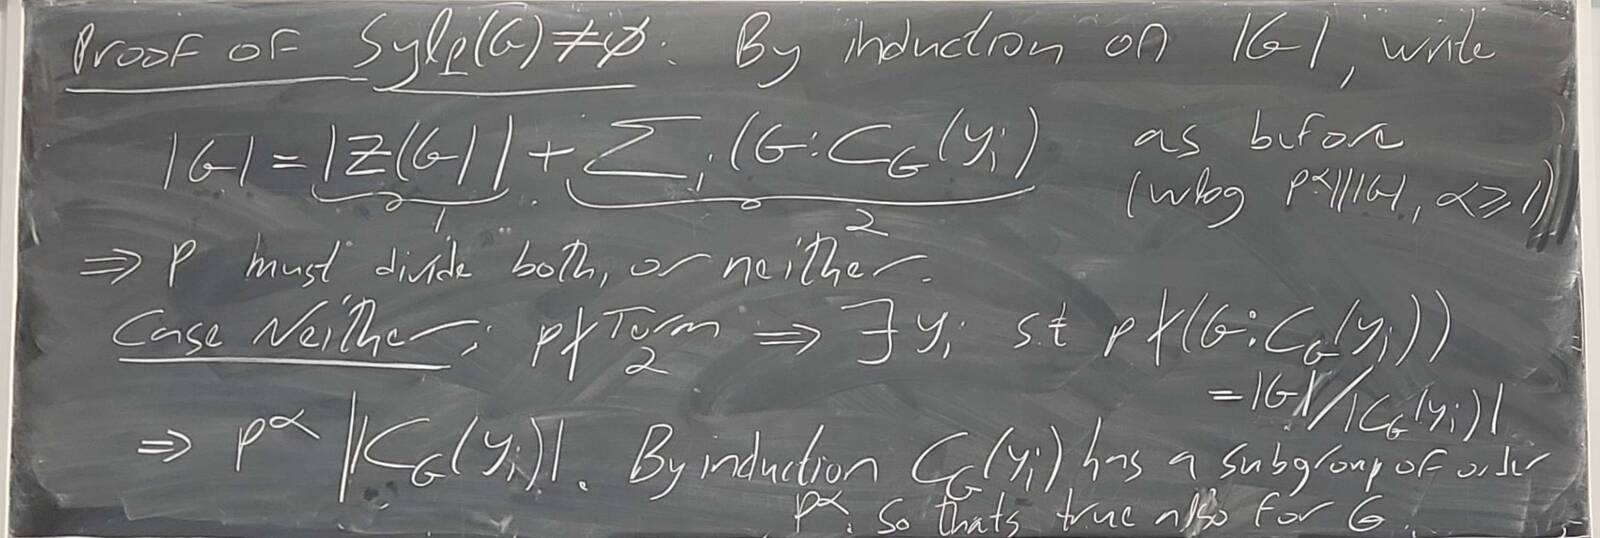 Proof of Syl_p(G) ≠ ∅: By induction on |G|, write
|G| = |Z(G)| + Σ_i (G:C_G(y_i)) as before
1 2 (wlog p^α || |G|, α ≥ 1)
⇒ p must divide both, or neither.
Case Neither: p ∤ Term 2 ⇒ ∃ y_i s.t p ∤ (G:C_G(y_i))
= |G| / |C_G(y_i)|
⇒ p^α || C_G(y_i)|. By induction C_G(y_i) has a subgroup of order
p^α. So thats true also for G.